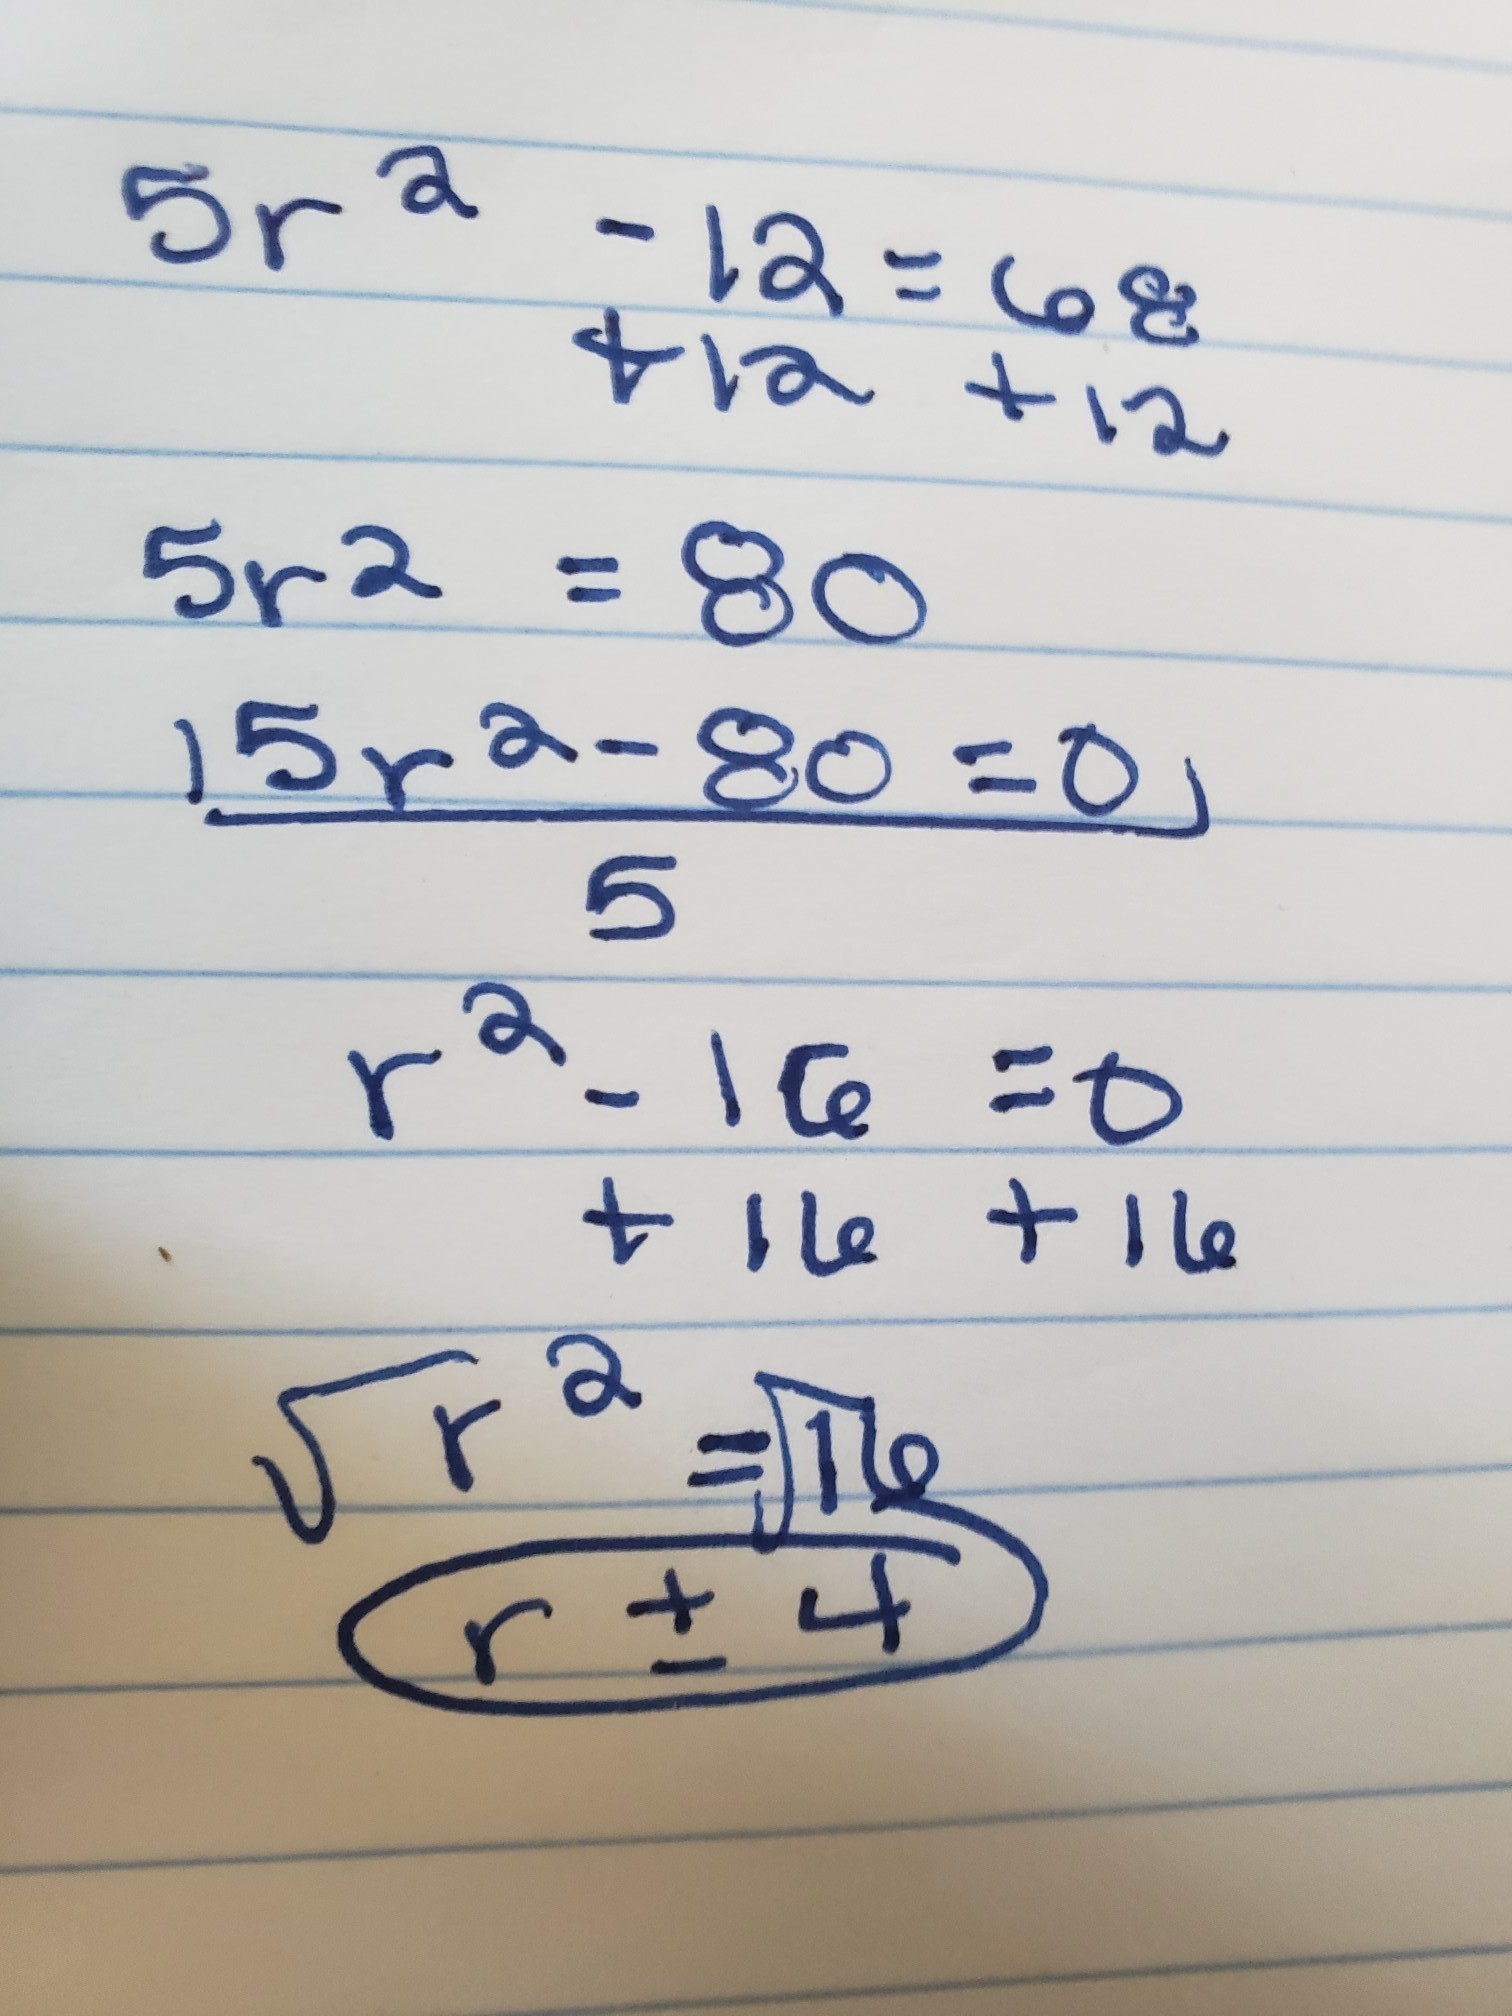 5r² - 12 = 68
+12 +12
5r² = 80
5r² - 80 = 0
5
r² - 16 = 0
+ 16 + 16
√r² = √16
r ± 4